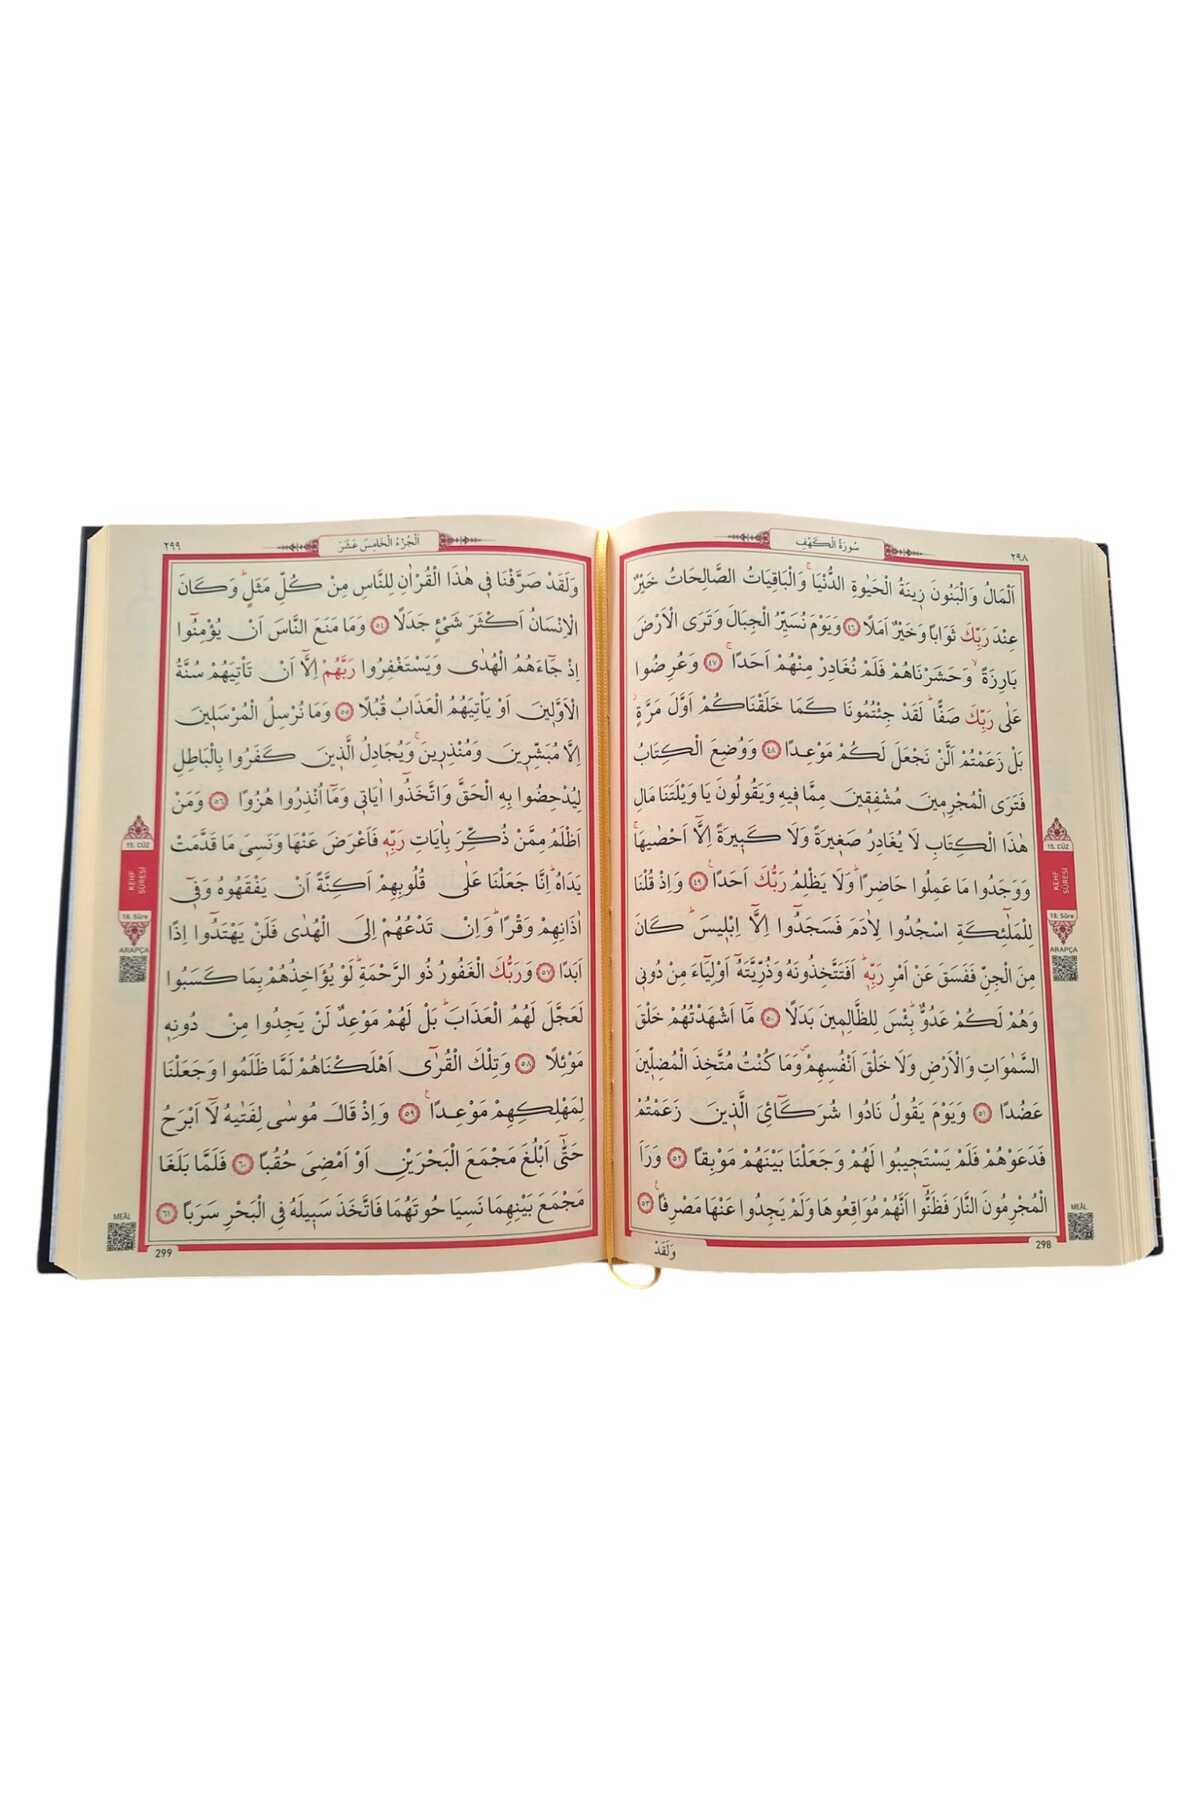 ٢٩٨
سُورَةُ الْكَهْفِ
اَلْمَالُ وَالْبَنُونَ زِينَةُ الْحَيٰوةِ الدُّنْيَاۚ وَالْبَاقِيَاتُ الصَّالِحَاتُ خَيْرٌ
عِنْدَ رَبِّكَ ثَوَاباً وَخَيْرٌ اَمَلًا ﴿٤٦﴾ وَيَوْمَ نُسَيِّرُ الْجِبَالَ وَتَرَى الْاَرْضَ
بَارِزَةًۙ وَحَشَرْنَاهُمْ فَلَمْ نُغَادِرْ مِنْهُمْ اَحَدًاۚ ﴿٤٧﴾ وَعُرِضُوا
عَلٰى رَبِّكَ صَفًّاۜ لَقَدْ جِئْتُمُونَا كَمَا خَلَقْنَاكُمْ اَوَّلَ مَرَّةٍۘ
بَلْ زَعَمْتُمْ اَلَّنْ نَجْعَلَ لَكُمْ مَوْعِدًا ﴿٤٨﴾ وَوُضِعَ الْكِتَابُ
فَتَرَى الْمُجْرِمِينَ مُشْفِقِينَ مِمَّا فِيهِ وَيَقُولُونَ يَا وَيْلَتَنَا مَالِ
هٰذَا الْكِتَابِ لَا يُغَادِرُ صَغِيرَةً وَلَا كَبِيرَةً اِلَّٓا اَحْصٰيهَاۚ
وَوَجَدُوا مَا عَمِلُوا حَاضِرًاۜ وَلَا يَظْلِمُ رَبُّكَ اَحَدًاۚ ﴿٤٩﴾ وَاِذْ قُلْنَا
لِلْمَلٰٓئِكَةِ اسْجُدُوا لِاٰدَمَ فَسَجَدُٓوا اِلَّٓا اِبْلِيسَۜ كَانَ
مِنَ الْجِنِّ فَفَسَقَ عَنْ اَمْرِ رَبِّهٖۜ اَفَتَتَّخِذُونَهُ وَذُرِّيَّتَهُٓ اَوْلِيَٓاءَ مِنْ دُونٖي
وَهُمْ لَكُمْ عَدُوٌّۜ بِئْسَ لِلظَّالِمِينَ بَدَلًا ﴿٥٠﴾ مَٓا اَشْهَدْتُهُمْ خَلْقَ
السَّمٰوَاتِ وَالْاَرْضِ وَلَا خَلْقَ اَنْفُسِهِمْۖ وَمَا كُنْتُ مُتَّخِذَ الْمُضِلِّينَ
عَضُدًا ﴿٥١﴾ وَيَوْمَ يَقُولُ نَادُوا شُرَكَٓائِيَ الَّذِينَ زَعَمْتُمْ
فَدَعَوْهُمْ فَلَمْ يَسْتَجِيبُوا لَهُمْ وَجَعَلْنَا بَيْنَهُمْ مَوْبِقاً ﴿٥٢﴾ وَرَاَ
الْمُجْرِمُونَ النَّارَ فَظَنُّٓوا اَنَّهُمْ مُوَاقِعُوهَا وَلَمْ يَجِدُوا عَنْهَا مَصْرِفًاۚ ﴿٥٣﴾
وَلَقَدْ
298
15. CÜZ
KEHF
SÛRESİ
18. Sûre
ARAPÇA
MEÂL
٢٩٩
اَلْجُزْءُ الْخَامِسَ عَشَرَ
وَلَقَدْ صَرَّفْنَا فِي هٰذَا الْقُرْاٰنِ لِلنَّاسِ مِنْ كُلِّ مَثَلٍۜ وَكَانَ
الْاِنْسَانُ اَكْثَرَ شَيْءٍ جَدَلًا ﴿٥٤﴾ وَمَا مَنَعَ النَّاسَ اَنْ يُؤْمِنُٓوا
اِذْ جَٓاءَهُمُ الْهُدٰى وَيَسْتَغْفِرُوا رَبَّهُمْ اِلَّٓا اَنْ تَأْتِيَهُمْ سُنَّةُ
الْاَوَّلِينَ اَوْ يَأْتِيَهُمُ الْعَذَابُ قُبُلًا ﴿٥٥﴾ وَمَا نُرْسِلُ الْمُرْسَلِينَ
اِلَّا مُبَشِّرِينَ وَمُنْذِرِينَۚ وَيُجَادِلُ الَّذِينَ كَفَرُوا بِالْبَاطِلِ
لِيُدْحِضُوا بِهِ الْحَقَّ وَاتَّخَذُٓوا اٰيَاتِي وَمَٓا اُنْذِرُوا هُزُوًا ﴿٥٦﴾ وَمَنْ
اَظْلَمُ مِمَّنْ ذُكِّرَ بِاٰيَاتِ رَبِّهٖ فَاَعْرَضَ عَنْهَا وَنَسِيَ مَا قَدَّمَتْ
يَدَاهُۜ اِنَّا جَعَلْنَا عَلٰى قُلُوبِهِمْ اَكِنَّةً اَنْ يَفْقَهُوهُ وَفِٓي
اٰذَانِهِمْ وَقْرًاۜ وَاِنْ تَدْعُهُمْ اِلَى الْهُدٰى فَلَنْ يَهْتَدُٓوا اِذًا
اَبَدًا ﴿٥٧﴾ وَرَبُّكَ الْغَفُورُ ذُو الرَّحْمَةِۜ لَوْ يُؤَاخِذُهُمْ بِمَا كَسَبُوا
لَعَجَّلَ لَهُمُ الْعَذَابَۜ بَلْ لَهُمْ مَوْعِدٌ لَنْ يَجِدُوا مِنْ دُونِهٖ
مَوْئِلًا ﴿٥٨﴾ وَتِلْكَ الْقُرٰٓى اَهْلَكْنَاهُمْ لَمَّا ظَلَمُوا وَجَعَلْنَا
لِمَهْلِكِهِمْ مَوْعِدًاۚ ﴿٥٩﴾ وَاِذْ قَالَ مُوسٰى لِفَتٰيهُ لَٓا اَبْرَحُ
حَتّٰٓى اَبْلُغَ مَجْمَعَ الْبَحْرَيْنِ اَوْ اَمْضِيَ حُقُبًا ﴿٦٠﴾ فَلَمَّا بَلَغَا
مَجْمَعَ بَيْنِهِمَا نَسِيَا حُوتَهُمَا فَاتَّخَذَ سَبِيلَهُ فِي الْبَحْرِ سَرَبًا ﴿٦١﴾
299
15. CÜZ
KEHF
SÛRESİ
18. Sûre
ARAPÇA
MEÂL